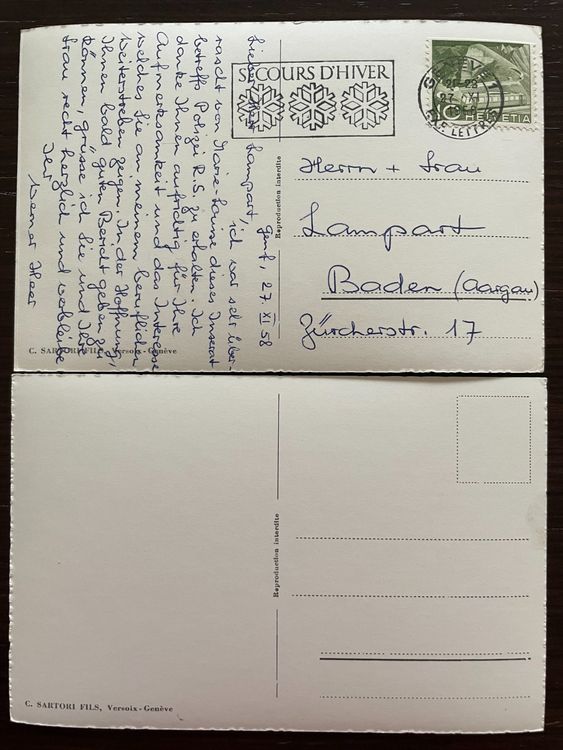 SECOURS D'HIVER
GENÈVE 1
EXP. LETTRES
10 HELVETIA
Genf, 27. XI 58
Lieber Herr Lampart,
ich war sehr über-
rascht von Marie-Louise dieses Inserat
betreffs Polizei R.S. zu erhalten. Ich
danke Ihnen aufrichtig für Ihre
Aufmerksamkeit und das Interesse
welches Sie an meinem beruflichen
Weiterstreben zeigen. In der Hoffnung,
Ihnen bald "guten Bericht" geben zu
können, grüsse ich Sie und Ihre
Frau recht herzlich und verbleibe
Ihr
Werner Heer
Reproduction interdite
Herrn + Frau
Lampart
Baden (Aargau)
Zürcherstr. 17
C. SARTORI FILS, Versoix-Genève
Reproduction interdite
C. SARTORI FILS, Versoix-Genève